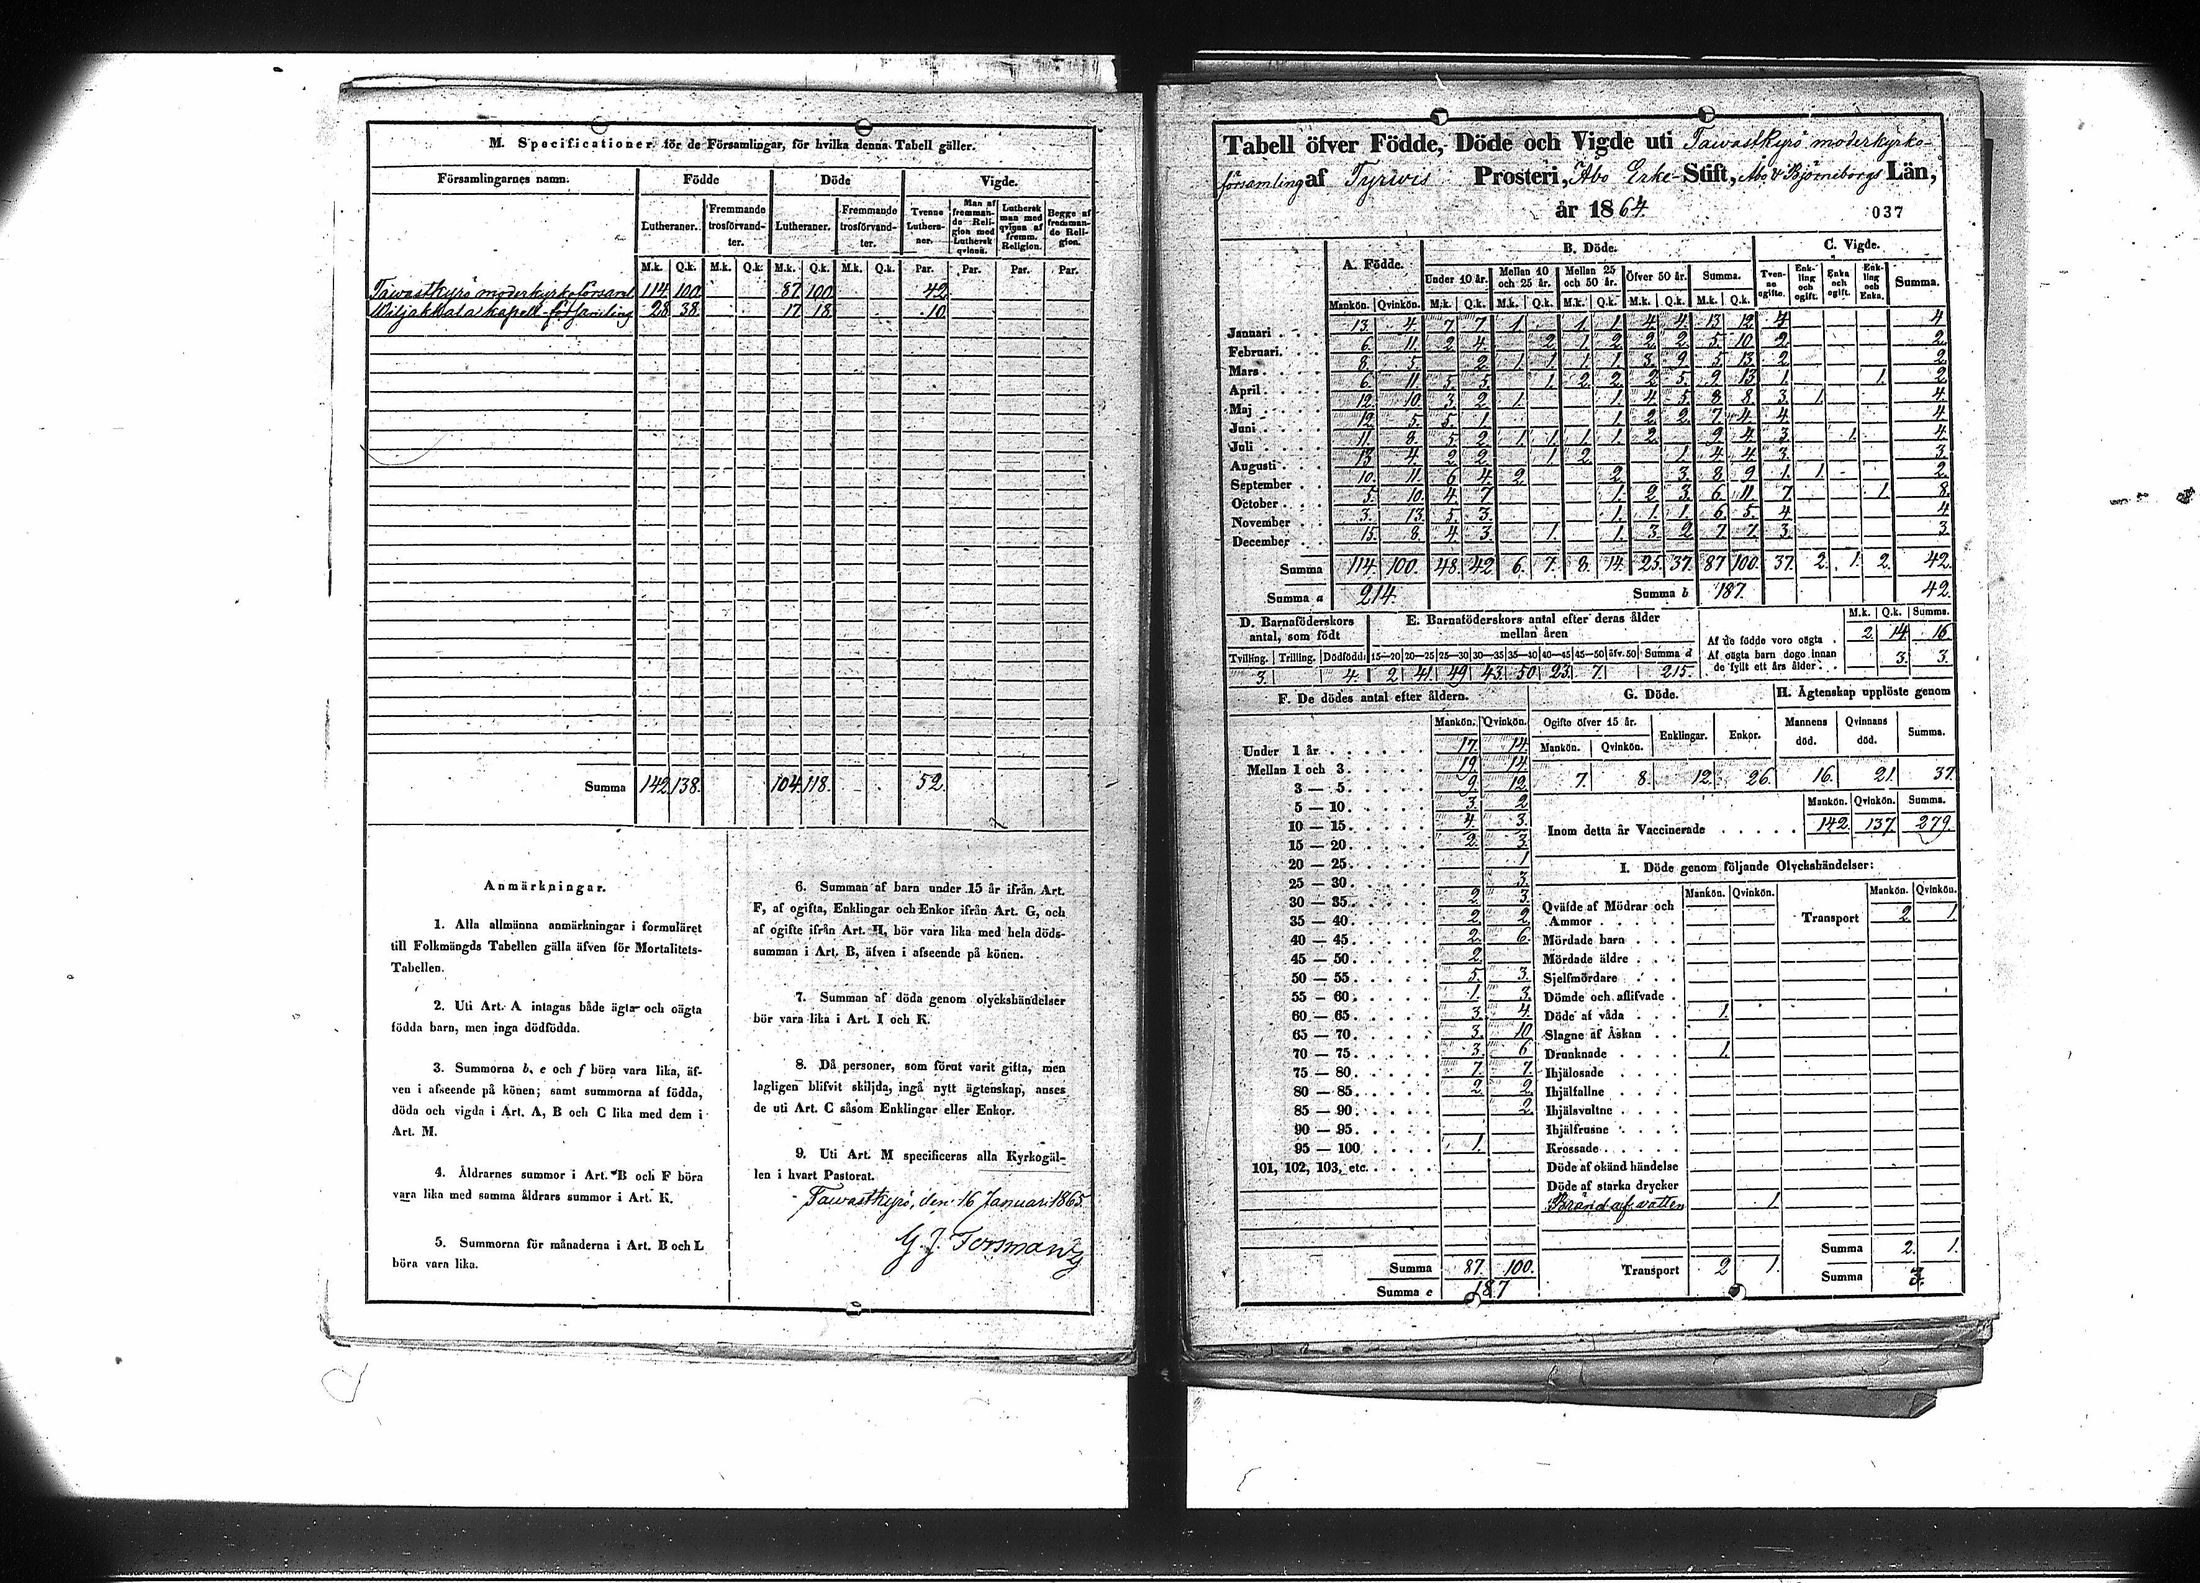 M. Specificationer för de Församlingar, för hvilka denna Tabell gäller.
Församlingarnes namn. Födde Döde Vigde.
Lutheraner. Fremmande trosförvandter. Lutheraner. Fremmande trosförvandter. Tvenne Lutheraner. Man af fremmande Religion med Luthersk qvinna. Luthersk man med qvinna af fremm. Religion. Begge af fremmande Religion.
M.k. Q.k. M.k. Q.k. M.k. Q.k. M.k. Q.k. Par. Par. Par. Par.
Tawastkyrö moderkyrkoförsaml 114 100 87 100 42
Wiljakkala kapell-församling 28 38 17 18 10
Summa 142 138. 104 118 52
Anmärkningar.
1. Alla allmänna anmärkningar i formuläret
till Folkmängds Tabellen gälla äfven för Mortalitets-
Tabellen.
2. Uti Art. A intagas både ägta och oägta
födda barn, men inga dödfödda.
3. Summorna b, e och f böra vara lika, äf-
ven i afseende på könen; samt summorna af födda,
döda och vigda i Art. A, B och C lika med dem i
Art. M.
4. Åldrarnes summor i Art. B och F böra
vara lika med samma åldrars summor i Art. K.
5. Summorna för månaderna i Art. B och L
böra vara lika.
6. Summan af barn under 15 år ifrån Art.
F, af ogifta, Enklingar och Enkor ifrån Art. G, och
af ogifte ifrån Art. H, bör vara lika med hela döds-
summan i Art. B, äfven i afseende på könen.
7. Summan af döda genom olyckshändelser
bör vara lika i Art. I och K.
8. Då personer, som förut varit gifta, men
lagligen blifvit skiljda, ingå nytt ägtenskap, anses
de uti Art. C såsom Enklingar eller Enkor.
9. Uti Art. M specificeras alla Kyrkogäl-
len i hvart Pastorat.
Tawastkyrö, den 16 Januari 1865.
G. J. Forsman
Tabell öfver Födde, Döde och Vigde uti Tawastkyrö moderkyrko-
församling af Tyrwis Prosteri, Åbo Erke-Stift, Åbo & Björneborgs Län,
år 1864. 037
A. Födde. B. Döde. C. Vigde.
Under 10 år. Mellan 10 och 25 år. Mellan 25 och 50 år. Öfver 50 år. Summa. Tvenne ogifte. Enkling och ogift. Enka och ogift. Enkling och Enka. Summa.
Mankön. Qvinkön. M.k. Q.k. M.k. Q.k. M.k. Q.k. M.k. Q.k. M.k. Q.k.
Januari 13 4 7 7 1 1 1 4 4 13 12 4 4
Februari. 6. 11 2 4 2 1. 2 2 2 5 10 2 2
Mars 8 5. 2 1 1 1. 1. 8 9 5 13 2 2
April 6 11 5 5 1. 2 2 2 5. 9 13 1. 1. 2
Maj 12. 10 3 2 1. 1. 4 5 8 8. 3. 1. 4.
Juni 12 5. 5 1. 1 2 2. 7 4 4. 4
Juli 11 8. 5 2 1 1. 1 1. 2. 9 4 3. 1. 4
Augusti 13 4 2 2 1. 2. 1 4 4 3. 3.
September 10. 11. 6 4 2 2 3. 8 9 1. 1 2
October 5. 10. 4 7 1. 2 3. 6 11 7 1. 8.
November 3. 13 5 3. 1. 1. 1. 6. 5. 4 4
December 15. 8. 4 3 1. 1. 3 2 7 7. 3 3
Summa 114. 100. 48. 42 6. 7. 8. 14. 25 37. 87 100. 37. 2. 1. 2. 42.
Summa a 214. Summa b 187. 42.
D. Barnaföderskors antal, som födt E. Barnaföderskors antal efter deras ålder mellan åren M.k. Q.k. Summa.
Af de födde voro oägta 2 14 16
Af oägta barn dogo innan de fyllt ett års ålder 3. 3.
Tvilling. Trilling. Dödfödd. 15—20 20—25 25—30 30—35 35—40 40—45 45—50 öfv. 50 Summa d
3. 4. 2 41. 49 43. 50 23. 7. 215.
F. De dödes antal efter åldern. G. Döde. H. Ägtenskap upplöste genom
Mankön. Qvinkön. Ogifte öfver 15 år. Enklingar. Enkor. Mannens död. Qvinnans död. Summa.
Mankön. Qvinkön.
7. 8. 12. 26. 16. 21. 37
Mankön. Qvinkön. Summa.
Inom detta år Vaccinerade 142. 137. 279.
Under 1 år 17. 14
Mellan 1 och 3 19 14
3 — 5 9. 12
5 — 10 3. 2
10 — 15 4. 3.
15 — 20 2. 3.
20 — 25 1
25 — 30 3.
30 — 35 2 3
35 — 40 2 2
40 — 45 2 6.
45 — 50 2
50 — 55 5. 3.
55 — 60 1. 3.
60 — 65 3. 4.
65 — 70 3. 10
70 — 75 3. 6
75 — 80 7. 7.
80 — 85 2 2
85 — 90 2
90 — 95
95 — 100 1.
101, 102, 103, etc.
Summa 87. 100.
Summa e 187
I. Döde genom följande Olyckshändelser:
Mankön. Qvinkön. Mankön. Qvinkön.
Qväfde af Mödrar och
Ammor
Transport 2 1
Mördade barn
Mördade äldre
Sjelfmördare
Dömde och aflifvade
Döde af våda 1.
Slagne af Åskan
Drunknade 1.
Ihjälosade
Ihjälfallne
Ihjälsvultne
Ihjälfrusne
Krossade
Döde af okänd händelse
Döde af starka drycker
Bränd af vatten 1.
Transport 2 1.
Summa 2. 1.
Summa 3.